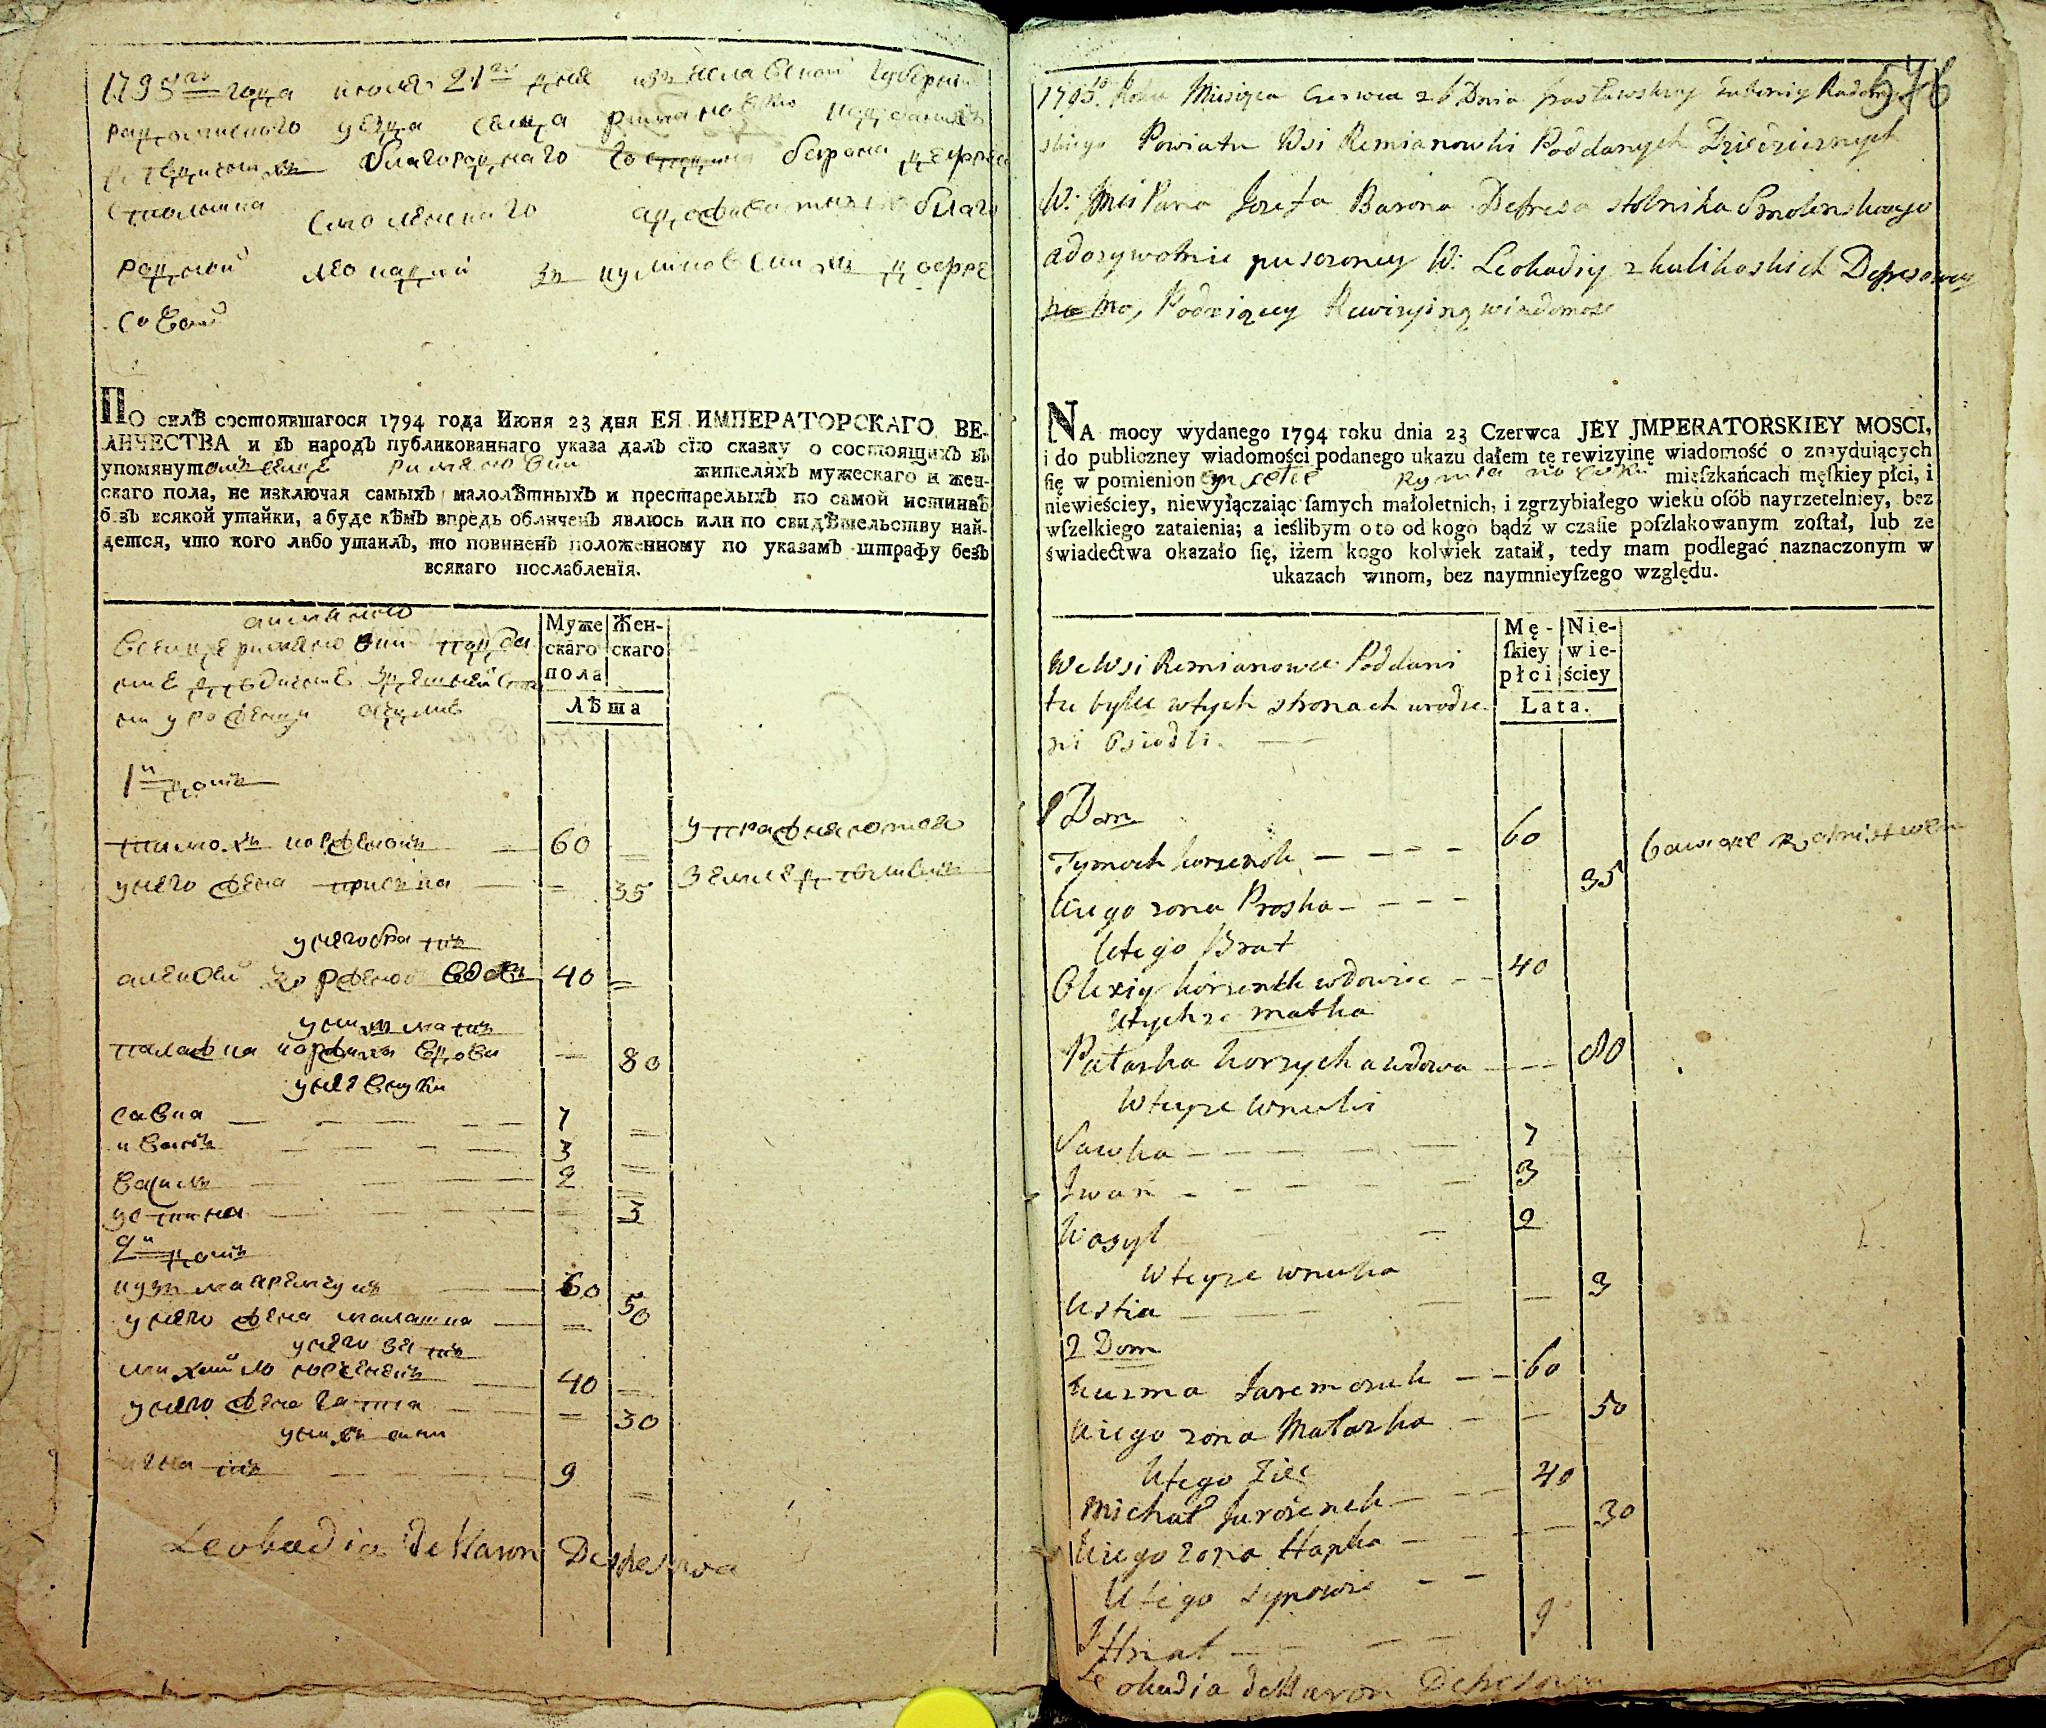 1795го года июля 21го дня изъ изеславской губернии
радомисльского уезда села римановки подданихъ
благородного господина барона дефреса
столника смоленского благо
родной леокадии зъ куликовскихъ дефре
совой
ПО силѣ состоявшагося 1794 года Июня 23 дня ЕЯ ИМПЕРАТОРСКАГО ВЕ-
ЛИЧЕСТВА и въ народъ публикованнаго указа далъ сїю сказку о состоящихъ въ
упомянутомъ селе жителяхъ мужескаго и жен-
скаго пола, не изключая самыхъ малолѣтныхъ и престарелыхъ по самой истиннѣ
безъ всякой утайки, а буде кѣмъ впредь обличенъ явлюсь или по свидѣтельству най-
дется, что кого либо утаилъ, то повиненъ положенному по указамъ штрафу безъ
всякаго послабленїя.
Муже
скаго
пола
Жен-
скаго
Лѣта
1й домъ
тимохъ корженокъ 60
у него жена приська 35
упражняются
земледелствомъ
у него братъ
алексей корженок 40
у нихъ мать
палажка коржиха вдова 80
у нее внуки
савка 7
иванъ 3
василь 2
устина 3
2й домъ
кузма яремчукъ 60
у него жена малашка 50
у него зять
михайло 40
у него жена гапка 30
у нихъ син
игнатъ 9
Leokadia de Baron Defresowa
576
1795go Roku Miesiąca Czerwca 21 Dnia Jzasławskiey Gubernij Radomysl
skiego Powiatu Wsi Remianowki Poddanych Dziedzicznych
W. Jmci Pana Jozefa Barona Defresa Stolnika Smolenskiego
a dozywotnie puszczoney W. Leokadij z Kulikoskich Defresowey
Podaiącey Rewizyiną wiadomosc
NA mocy wydanego 1794 roku dnia 23 Czerwca JEY JMPERATORSKIEY MOSCI,
i do publiczney wiadomości podanego ukazu dałem tę rewizyinę wiadomość o znayduiących
ſię w pomienion mieszkańcach męſkiey płci, i
niewieściey, niewyłączaiąc ſamych małoletnich, i zgrzybiałego wieku oſób nayrzetelniey, bez
wſzelkiego zataienia; a ieślibym o to od kogo bądź w czaſie poſzlakowanym zoſtał, lub ze
świadectwa okazało ſię, iżem kogo kolwiek zataił, tedy mam podlegać naznaczonym w
ukazach winom, bez naymnieyſzego względu.
Mę-
ſkiey
płci
Nie-
wie-
ściey
Lata.
We Wsi Remianowce Poddani
tu bylce w tych stronach urodze
ni Osiedli.
1 Dom
Tymoch korzenok 60
U iego zona Proska 35
U tego Brat
Olexiy korzenok wdowiec 40
U tychze matka
Pałaska korzycha wdowa 80
U teyze wnuki
Sawka 7
Jwan 3
Wasyl 2
U teyze wnuka
Ustia 3
2 Dom
Kuzma Jaremczuk 60
U iego zona Małaszka 50
U tego Zięc
Michał 40
U iego zona Hapka 30
U tego synowie
Jhnat 9
Leokadia de Baron Defresowa